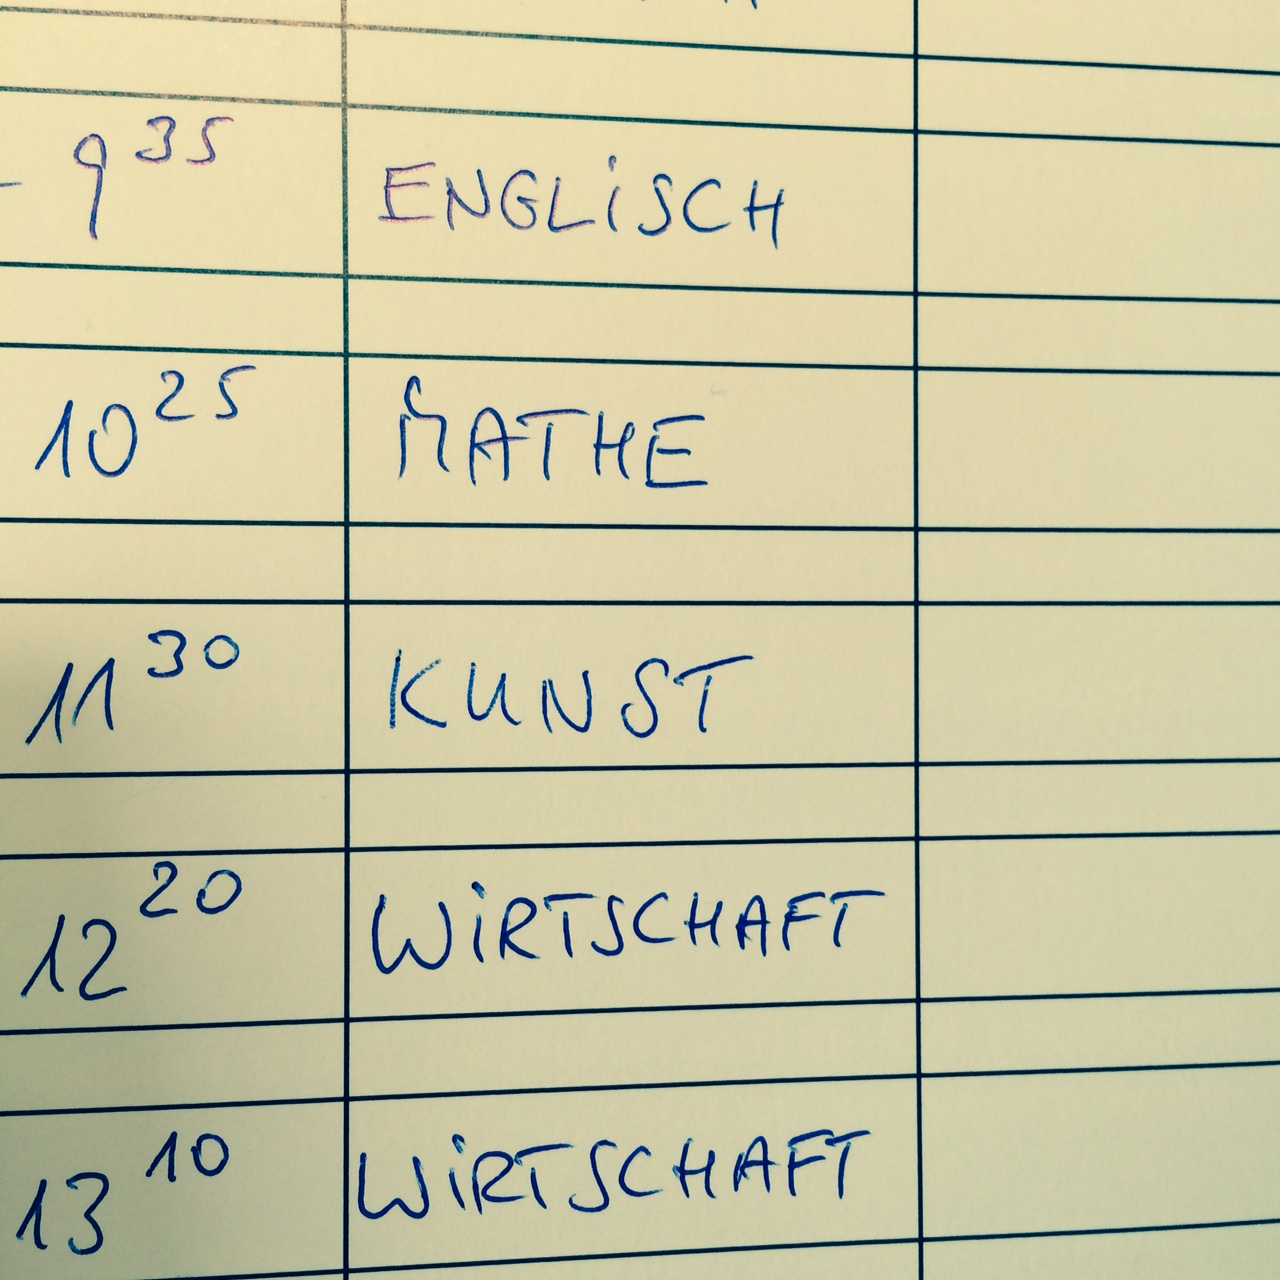 - 9 35 ENGLISCH
10 25 MATHE
11 30 KUNST
12 20 WIRTSCHAFT
13 10 WIRTSCHAFT